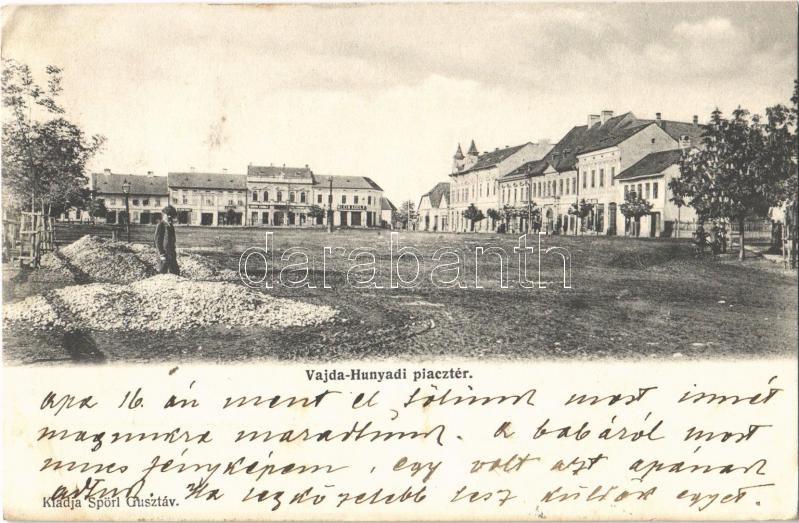 KLEIN ADOLF
darabanth
Vajda-Hunyadi piacztér.
Apa 16. án ment el tőlünk most ismét
magunkra maradtunk. A babáról most
nincs fényképem, egy volt azt apának
adtuk. Ha legközelebb lesz küldök egyet.
Kiadja Spörl Gusztáv.